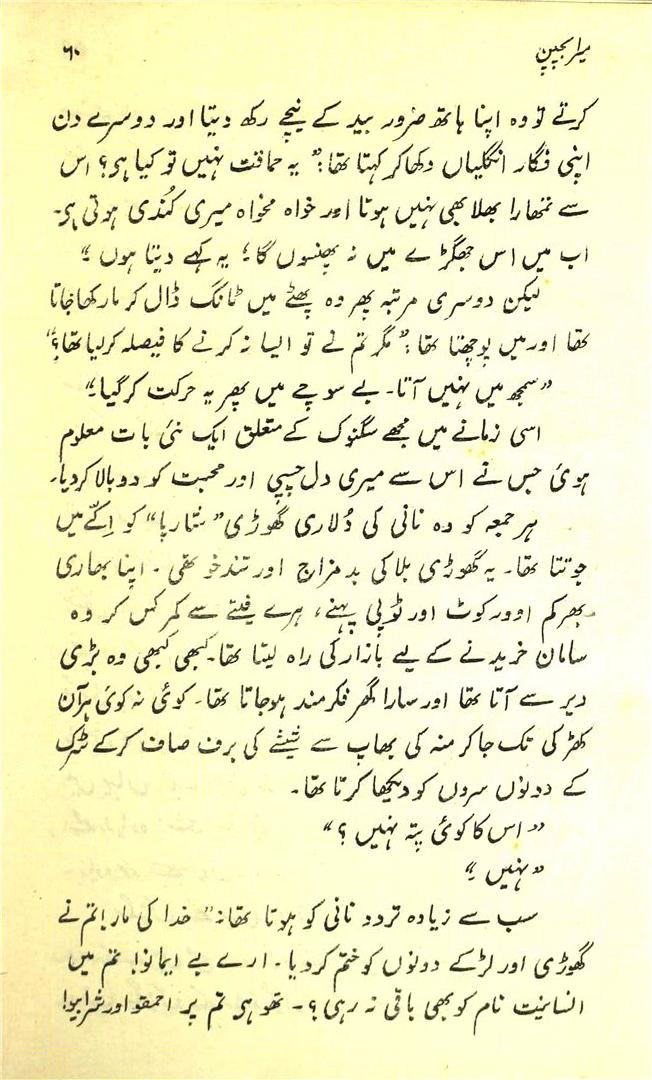 میرا بچپن ۶۰
کرتے تو وہ اپنا ہاتھ ضرور بید کے نیچے رکھ دیتا اور دوسرے دن
اپنی فگار انگلیاں دکھا کر کہتا تھا: ” یہ حماقت نہیں تو کیا ہی؟ اس
سے تمھارا بھلا بھی نہیں ہوتا اور خواہ مخواہ میری کُندی ہوتی ہی۔
اب میں اس جھگڑے میں نہ پھنسوں گا؛ یہ کہے دیتا ہوں “
لیکن دوسری مرتبہ پھر وہ پھٹے میں ٹانگ ڈال کر مار کھا جاتا
تھا اور میں پوچھتا تھا: ” مگر تم نے تو ایسا نہ کرنے کا فیصلہ کر لیا تھا؟“
” سمجھ میں نہیں آتا۔ بے سوچے میں پھر یہ حرکت کر گیا “
اسی زمانے میں مجھے سگنوک کے متعلق ایک نئی بات معلوم
ہوئی جس نے اس سے میری دل چسپی اور محبت کو دوبالا کر دیا۔
ہر جمعہ کو وہ نانی کی دُلاری گھوڑی ” شاراپا “ کو اِکّے میں
جوتتا تھا۔ یہ گھوڑی بلا کی بد مزاج اور تند خو تھی۔ اپنا بھاری
بھرکم اوور کوٹ اور ٹوپی پہنے، ہرے فیتے سے کمر کس کر وہ
سامان خریدنے کے لیے بازار کی راہ لیتا تھا۔ کبھی کبھی وہ بڑی
دیر سے آتا تھا اور سارا گھر فکرمند ہو جاتا تھا۔ کوئی نہ کوئی ہر آن
کھڑکی تک جا کر منہ کی بھاپ سے شیشے کی برف صاف کر کے سڑک
کے دونوں سروں کو دیکھا کرتا تھا۔
” اس کا کوئی پتہ نہیں؟ “
” نہیں “
سب سے زیادہ تردد نانی کو ہوتا تھا: ” خدا کی مار! تم نے
گھوڑی اور لڑکے دونوں کو ختم کر دیا۔ ارے بے ایمانو! تم میں
انسانیت نام کو بھی باقی نہ رہی؟۔ تھو ہی تم پر احمقو اور شرابیو!